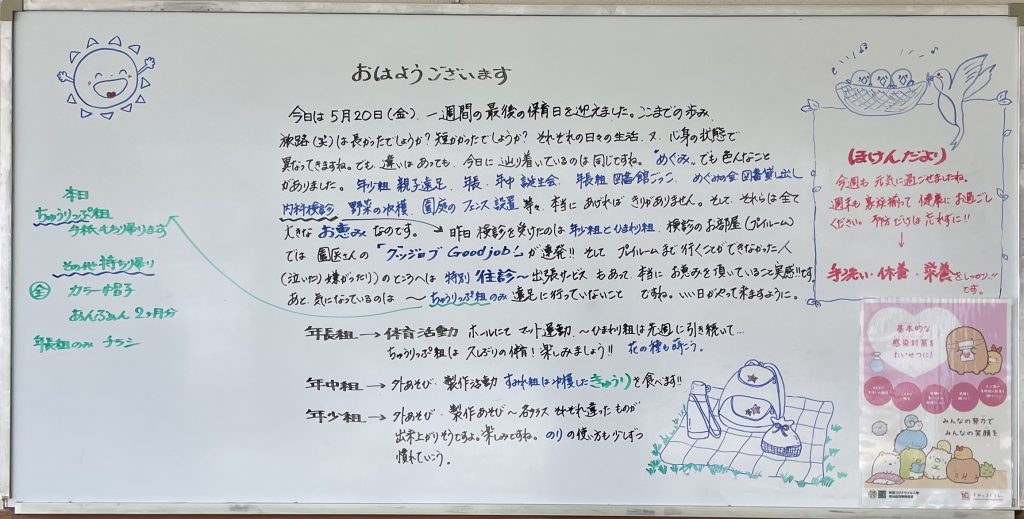 おはようございます
今日は5月20日(金)、一週間の最後の保育日を迎えました。ここまでの歩み、
旅路(笑)は長かったでしょうか?短かったでしょうか?それぞれの日々の生活、又、心身の状態で
異なってきますね。でも、違いはあっても、今日に辿り着いているのは同じですね。"めぐみ"でも色んなこと
がありました。年少組 親子遠足、年長・年中 誕生会、年長組 図書館ごっこ、めぐみの会 図書貸し出し
内科検診、野菜の収穫、園庭のフェンス設置 等々、本当に あげれば きりがありません。そして、それらは全て
大きな お恵み なのです。→昨日 検診を受けたのは 年少組とひまわり組。検診のお部屋(プレイルーム)
では 園医さんの「グッジョブ Good job」が連発!!そして プレイルームまで行くことができなかった人
(泣いたり嫌がったり)のところへは 特別 往診〜出張サービス もあって、本当に お恵みを頂いていること実感!!です。
あと、気になっているのは 〜ちゅうりっぷ組のみ 遠足に行っていないこと ですね。いい日がやって来ますように。
年長組→体育活動 ホールにて マット運動、〜ひまわり組は先週に引き続いて…
ちゅうりっぷ組は 久しぶりの体育!楽しみましょう!! 花の種も
年中組→外あそび・製作活動 すみれ組は収穫したきゅうりを食べます!!
年少組→外あそび・製作あそび〜各クラス それぞれ違ったものが
出来上がりそうですよ。楽しみですね。のりの使い方も少しずつ
慣れていこう。
本日
ちゅうりっぷ組
手紙もち帰ります
その他 持ち帰り
全 カラー帽子
あんふぁん 2ヶ月分
年長組のみ チラシ
ほけんだより
今週も 元気に過ごせましたね。
週末も 家族揃って 健康に お過ごし
ください。予防だけは 忘れずに!!
↓
手洗い・休養・栄養をしっかり!!
です。
基本的な
感染対策を
たいせつに!
みんなの努力で
みんなの笑顔を